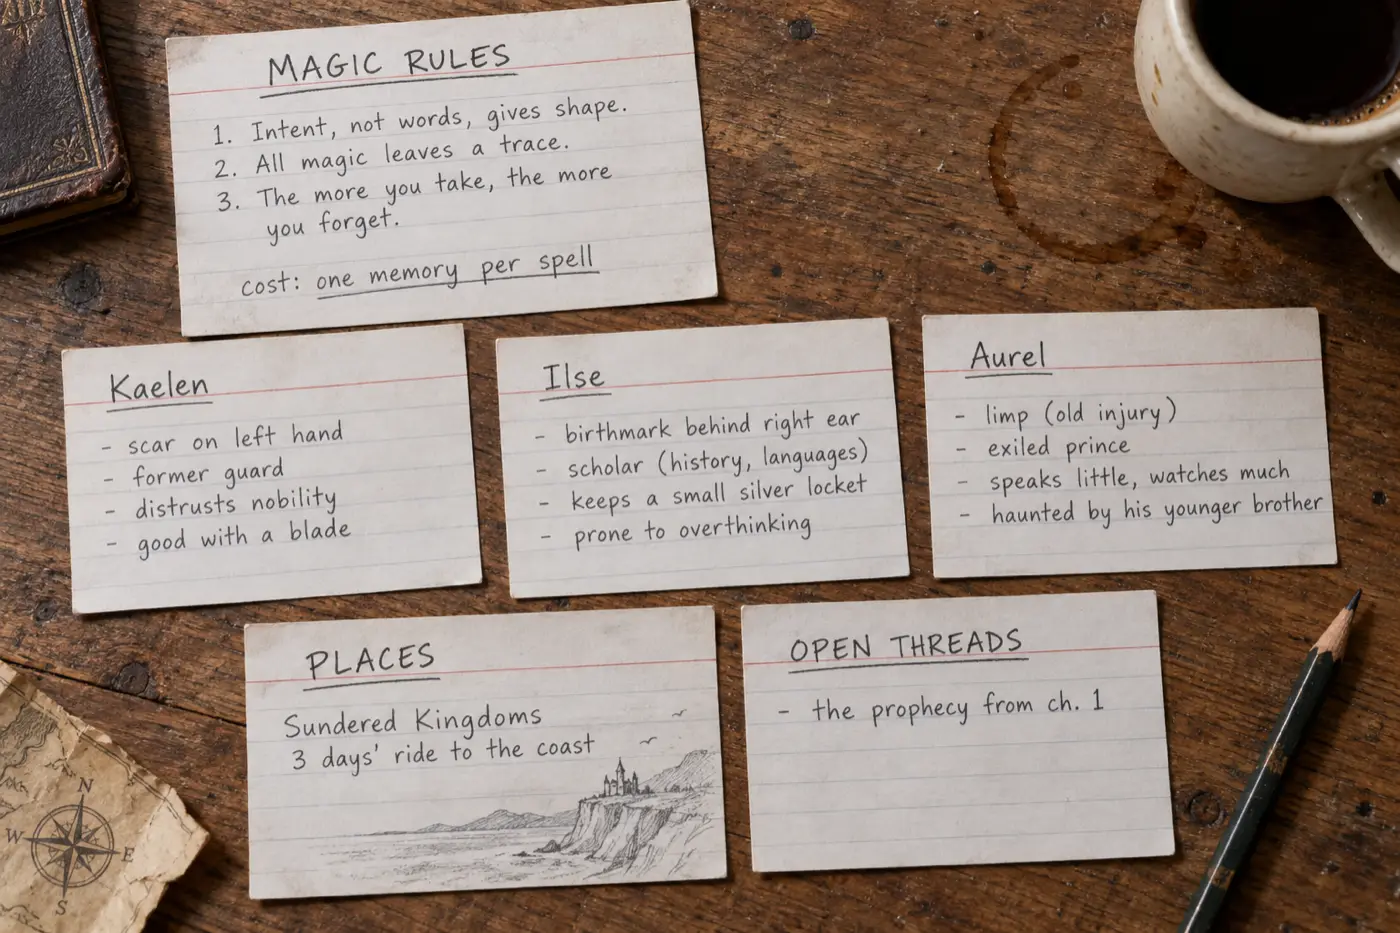 MAGIC RULES
1. Intent, not words, gives shape.
2. All magic leaves a trace.
3. The more you take, the more
you forget.
cost: one memory per spell
Kaelen
- scar on left hand
- former guard
- distrusts nobility
- good with a blade
Ilse
- birthmark behind right ear
- scholar (history, languages)
- keeps a small silver locket
- prone to overthinking
Aurel
- limp (old injury)
- exiled prince
- speaks little, watches much
- haunted by his younger brother
PLACES
Sundered Kingdoms
3 days' ride to the coast
OPEN THREADS
- the prophecy from ch. 1
N
W
E
S